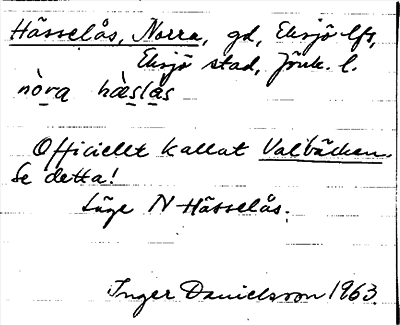 Hässelås, Norra, gd, Eksjö lfs,
Eksjö stad, Jönk. l.
nòra hæslås
Officiellt kallat Valbäcken.
Se detta!
Läge N Hässelås.
Inger Danielsson 1963.